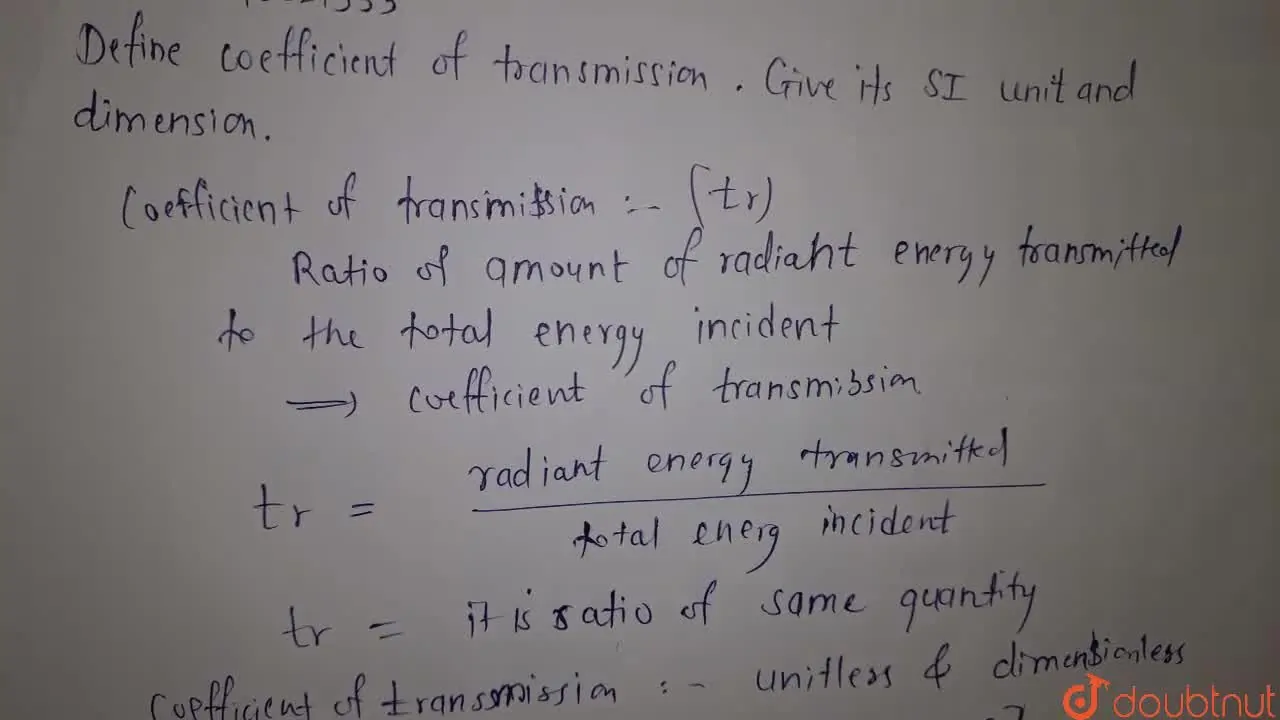 Define coefficient of transmission. Give its SI unit and
dimension.
Coefficient of transmission :- (tr)
Ratio of amount of radiant energy transmitted
to the total energy incident
⟹ coefficient of transmission
tr = radiant energy transmitted
total energ incident
tr = it is ratio of same quantity
coefficient of transmission :- unitless & dimensionless
doubtnut